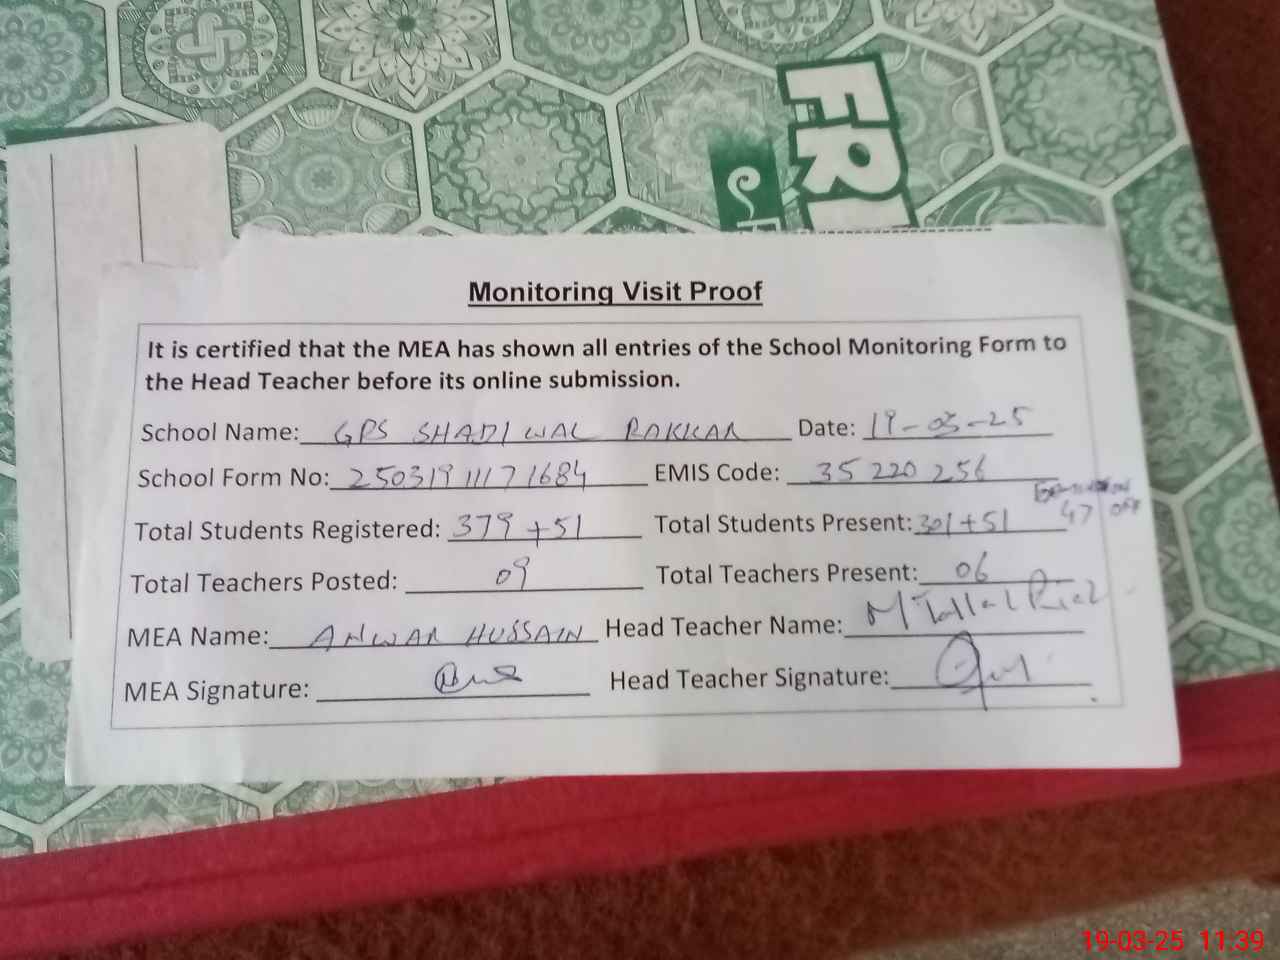 FRE
Monitoring Visit Proof
It is certified that the MEA has shown all entries of the School Monitoring Form to
the Head Teacher before its online submission.
School Name: GPS SHADIWAL RAKKAR Date: 19-03-25
School Form No: 25031911171684 EMIS Code: 35220256
Total Students Registered: 379+51 Total Students Present: 301+51 47 OFF
Total Teachers Posted: 09 Total Teachers Present: 06
MEA Name: ANWAR HUSSAIN Head Teacher Name: M Tallal
MEA Signature: Head Teacher Signature:
19-03-25 11:39